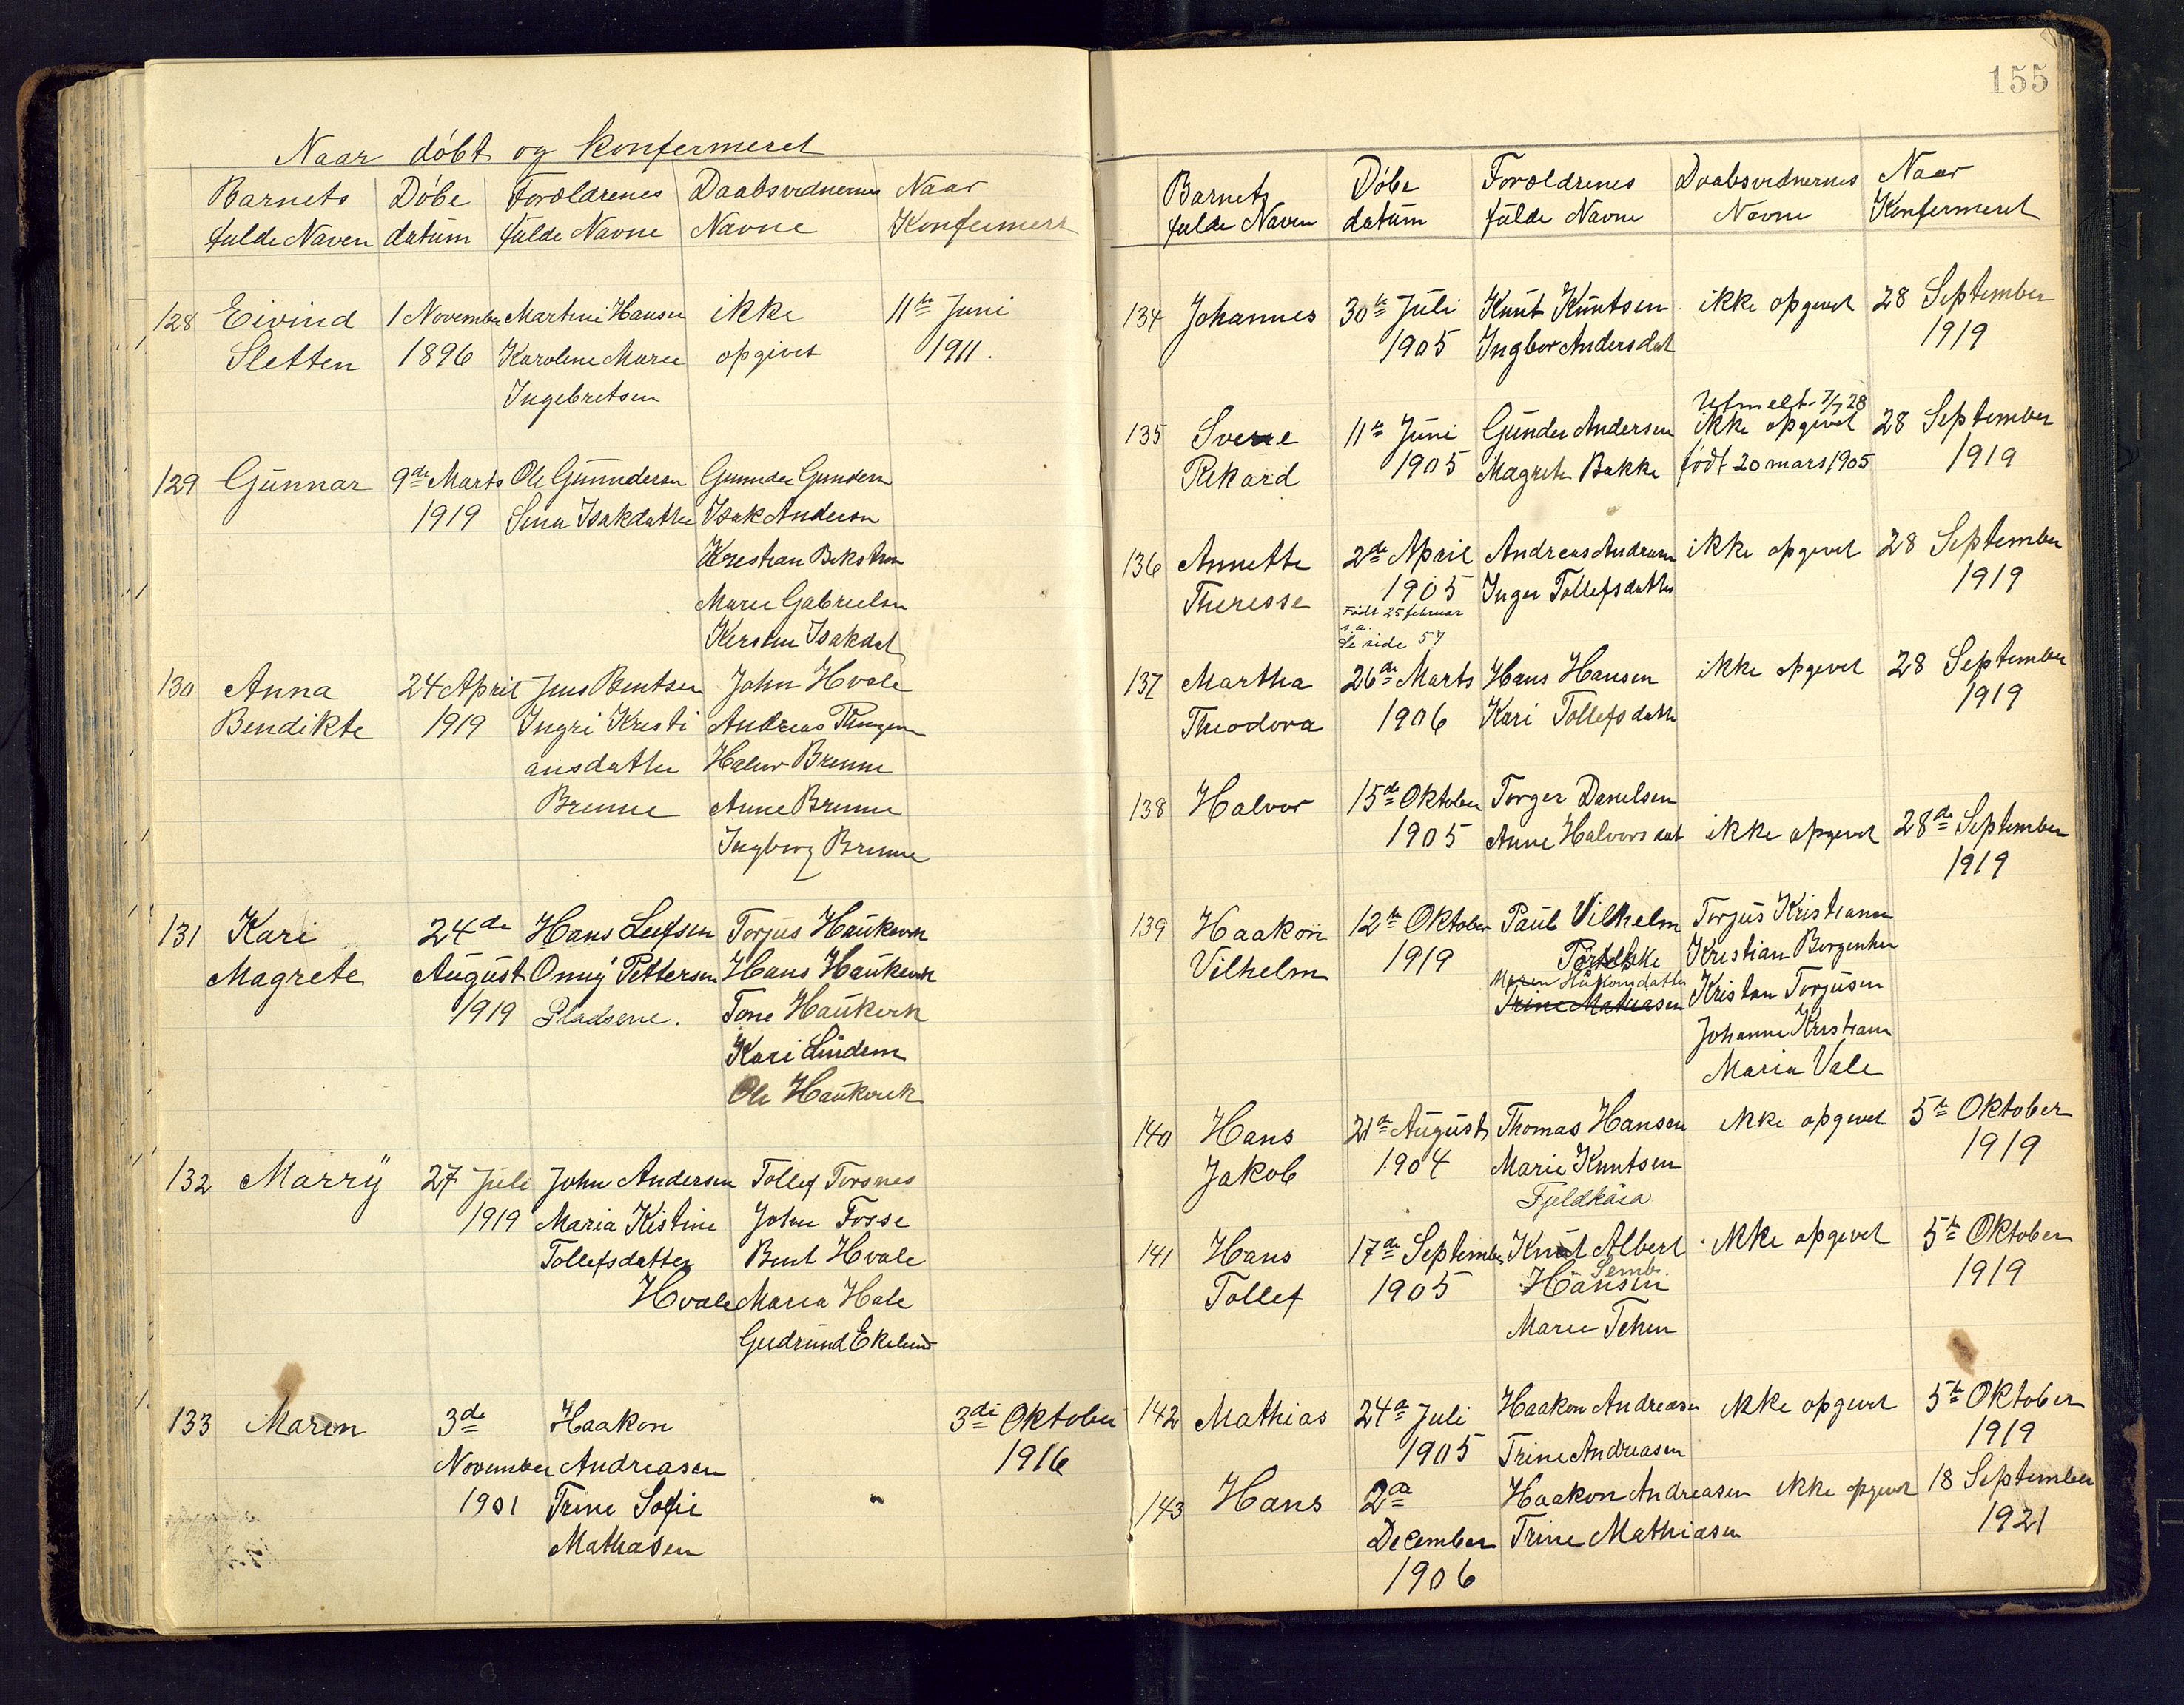 Naar döbt og konfermeret
Barnets Döbe Forældrenes Daabsvidnernes Naar
fulde Naven datum fulde Navne Navne Konfermert
128 Eivind 1 November Martini Hansen ikke 11te Juni
Sletten 1896 Karoline Marie opgivet 1911.
Ingebretsen
129 Gunnar 9de Marts Ole Gunnudersen Gunnder Gundersn
1919 Sina Isakdatter Isak Andersn
Krestian
Marie Gabrielsn
Isakdat
130 Anna 24 April Jens Bentsen John Hvale
Bendikte 1919 Ingri Kristi Andreas Tangen
ansdatter Halvor Brenne
Brenne Anne Brenne
Ingborg Brenne
131 Kari 24de Hans Leifsen Torjus Haukerek
Magrete August Onny Pettersen Hans Haukerek
1919 Pladsene. Tone Haukerek
Kari Lindem
Ole Haukerek
132 Marry 27 Juli John Andersen Tollef Torsnes
1919 Maria Kistine John Fosse
Tollefsdatter Bent Hvale
Hvale Maria Hale
Gudrund Ekelund
133 Maren 3de Haakon 3di Oktober
November Andreasen 1916
1901 Trine Sofie
Mathasen
155
Barnets Döbe Forældrenes Daabsvidnernes Naar
fulde Naven datum fulde Navne Navne Konfermeret
134 Johannes 30te Juli Knut Knutsen ikke opgevet 28 September
1905 Ingbor Andersdat 1919
Utmelt 7/7 28
135 Sverre 11te Juni Gunder Andersen ikke opgevet 28 September
Rikard 1905 Magrete Bakke født 20 mars 1905 1919
136 Annette 2de April Andreas Andreasen ikke opgevet 28 September
Theresse 1905 Inger Tollefsdatter 1919
Født 25 februar
s.a.
Se side 57
137 Martha 26de Marts Hans Hansen ikke opgevet 28 September
Theodora 1906 Kari Tollefsdatter 1919
138 Halvor 15de Oktober Torger Danelsen
1905 Anne Halvorsdat ikke opgevet 28de September
1919
139 Haakon 12te Oktober Paul Vilhelm Torjus Kristiansn
Vilhelm 1919 Kristian
Maren Håkonsdatter Kristan Torjusen
Trine Mathiasen Johanne Kristiansn
Maria Vale
140 Hans 21de August Thomas Hansen ikke opgevet 5te Oktober
Jakob 1904 Marie Knutsen 1919
Fjeldkåsa
141 Hans 17de September Knut Albert ikke opgevet 5te Oktober
Semb.
Tollef 1905 Hansen 1919
Marie
142 Mathias 24de Juli Haakon Andreasen ikke opgevet 5te Oktober
1905 Trine Andreasen 1919
143 Hans 2de Haakon Andreasen ikke opgevet 18 September
December Trine Mathiasen 1921
1906